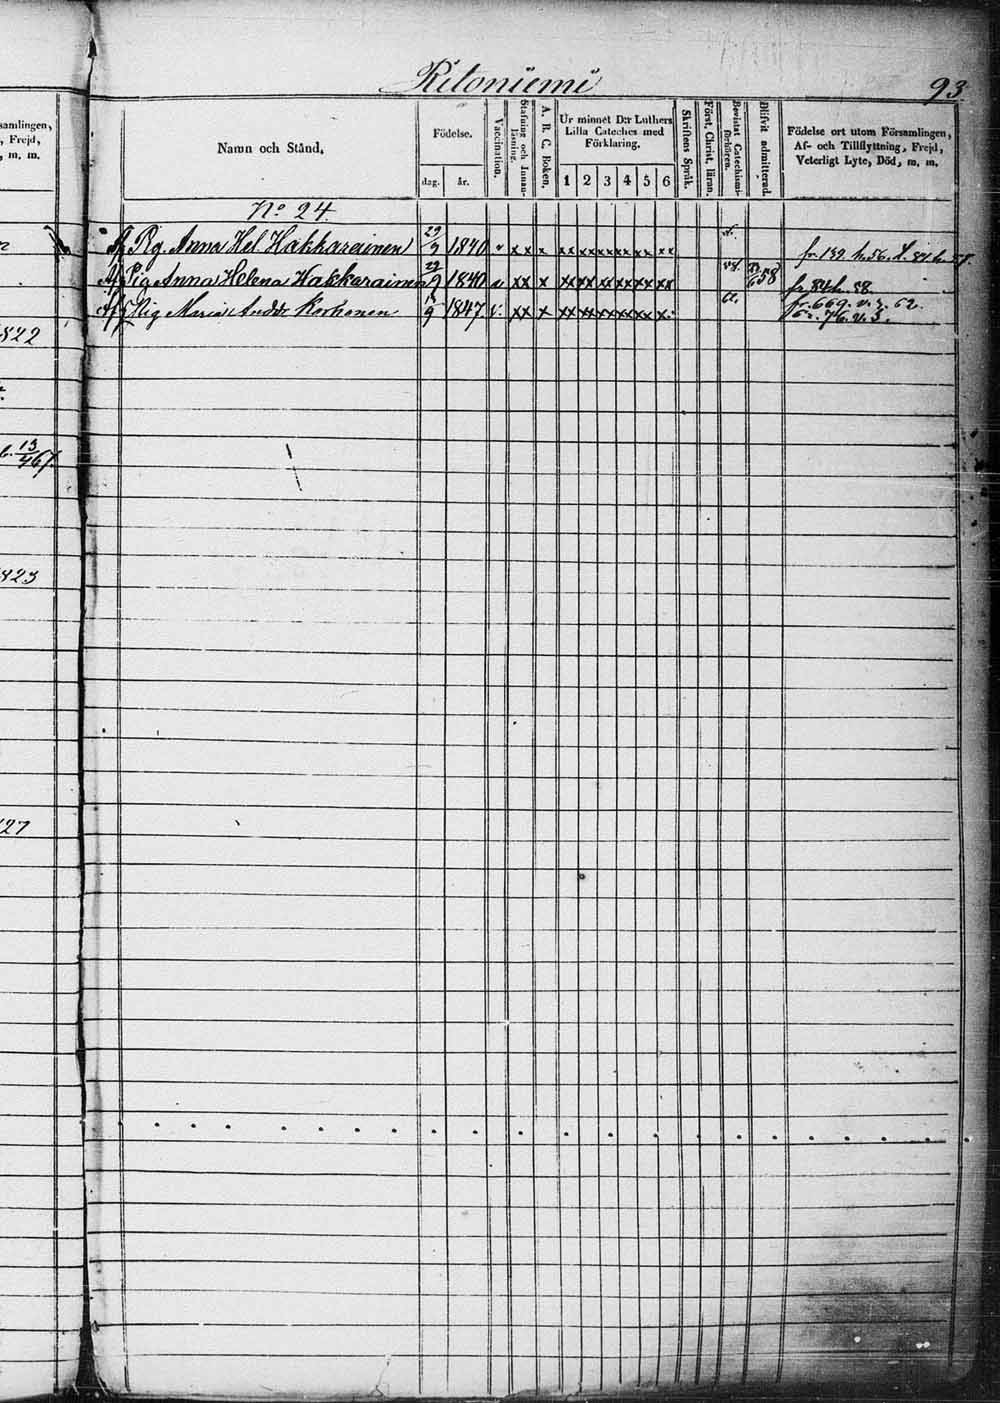 Ritoniemi
93.
samlingen,
, Frejd,
, m. m.
Namn och Stånd,
Födelse.
dag.
år.
Vaccination.
Stafning och Innan-
läsning.
A. B. C. Boken.
Ur minnet D:r Luthers
Lilla Cateches med
Förklaring.
1 2 3 4 5 6
Skriftens Språk.
Först. Christ. läran.
Bevistat Catechismi-
förhören.
Blifvit admitterad.
Födelse ort utom Församlingen,
Af- och Tillflyttning, Frejd,
Veterligt Lyte, Död, m. m.
No 24.
Pig. Anna Hel. Hakkarainen 29/9 1840 v xx x xx xx xx xx xx xx fr. 139 h. 56.
Af Pig Anna Helena Hakkarainen 29/9 1840 v xx x xx xx xx xx xx xx 58. 58 fr. 84 h. 58.
Pig Maria Anddr Korhonen 9 1847 v. xx x xx xx xx xx xx x. fr. 669. v. 3. 62.
76. v. 3.
1822
13
1823
127